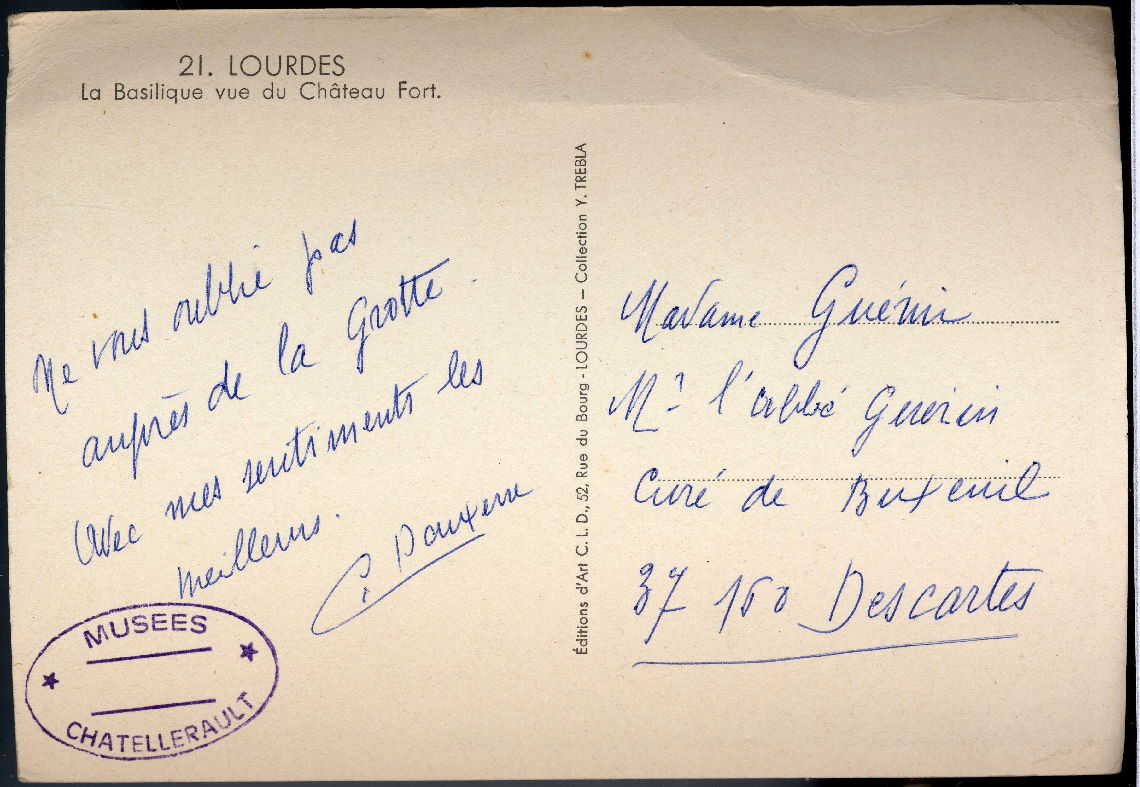 21. LOURDES
La Basilique vue du Château Fort.
Ne vous oublie pas
auprès de la Grotte.
Avec mes sentiments les
meilleurs.
Éditions d'Art C. L. D., 52, Rue du Bourg - LOURDES – Collection Y. TREBLA
Madame Guérin
Mr l'abbé Guerin
Curé de Buxeuil
37 160 Descartes
MUSEES
CHATELLERAULT